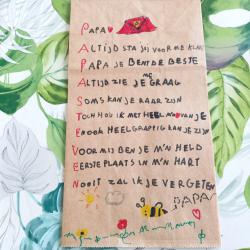 PAPA
ALTIJD STA JIJ VOOR ME KLAAR
PAPA JE BENT DE BESTE
ALTIJD ZIE JE ME GRAAG
SOMS KAN JE RAAR ZIJN
TOCH HOU IK MET HEEL M'N VAN JE
EN OOK HEEL GRAPPIG KAN JE ZIJN
VOOR MIJ BEN JE M'N HELD
EERSTE PLAATS IN M'N HART
NOOIT ZAL IK JE VERGETEN
PAPA